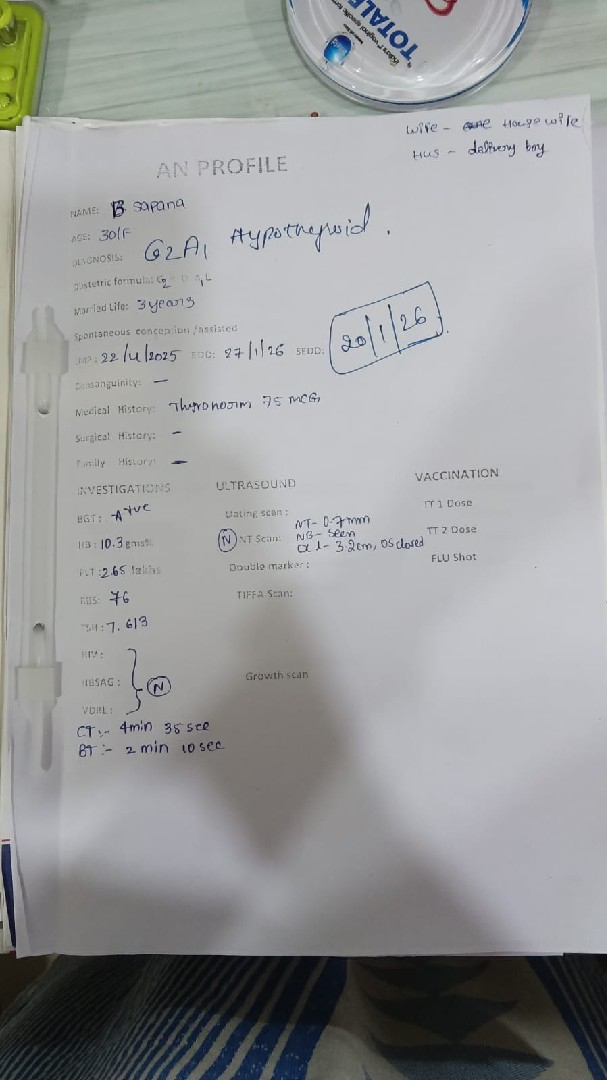 TOTALE
Wife - House wife
Hus - delivery boy
AN PROFILE
NAME: B Sapana
AGE: 30/F
DIAGNOSIS: G2A1 Hypothyroid.
Obstetric formula: G2 A1 L
Married Life: 3 years
Spontaneous conception /assisted
LMP: 22/4/2025 EDD: 27/1/26 SEDD: 20/1/26
Consanguinity: -
Medical History: Thyronorm 75 MCG
Surgical History: -
Family History: -
INVESTIGATIONS ULTRASOUND VACCINATION
BGT: A+ve Dating scan: TT 1 Dose
HB: 10.3 gms% (N) NT Scan: NT- 0.7mm TT 2 Dose
NB- seen
CL- 3.2cm, OS closed
PLT: 2.65 lakhs Double marker: FLU Shot
RBS: 76 TIFFA Scan:
TSH: 7.613
HIV:
HBSAG: (N) Growth scan
VDRL:
CT:- 4min 35 sec
BT:- 2 min 10 sec